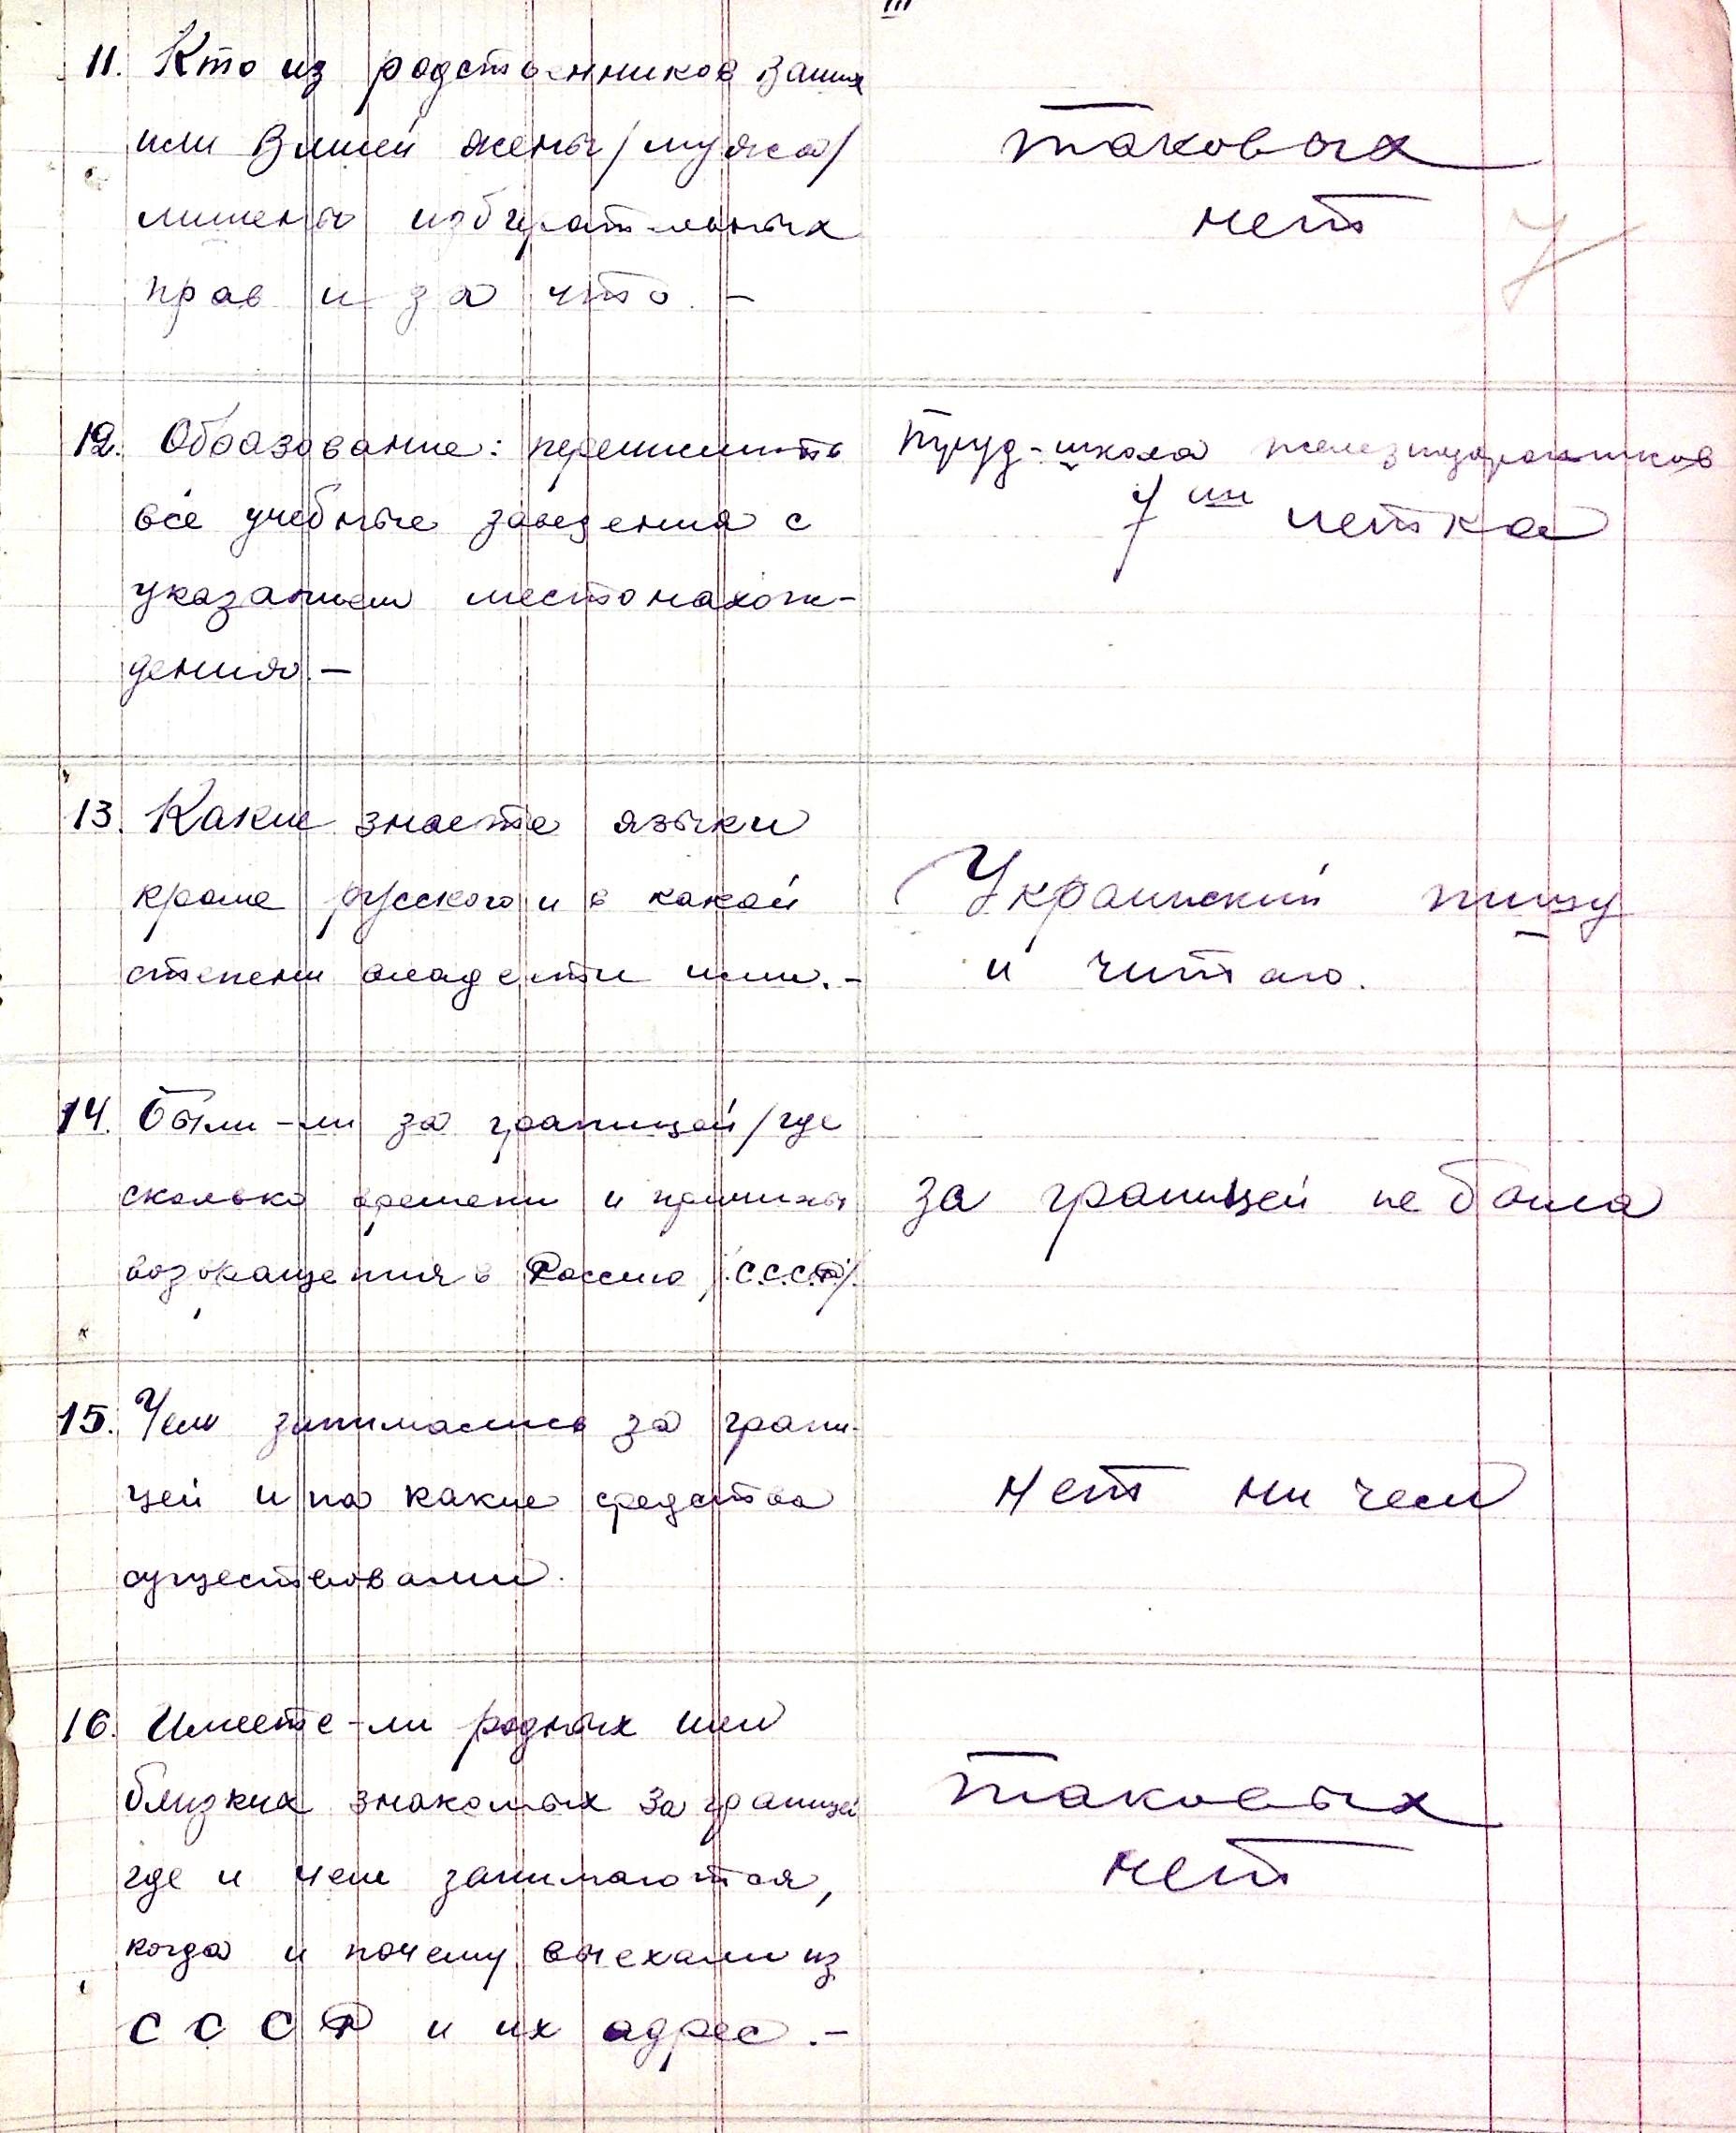 III
11. Кто из родственников Ваших
или Вашей жены /мужа/
лишены избирательных
прав и за что. –
таковых
нет
7
12. Образование: перечислить
все учебные заведения с
указанием местонахож-
дения. –
Труд-школа железнодорожников
7ми летка
13. Какие знаете языки
кроме русского и в какой
степени владеете ими. –
Украинский пишу
и читаю.
14. Были-ли за границей /где
сколько времени и причины
возвращения в Россию /С.С.С.Р/.
за границей не была
15. Чем занимались за грани-
цей и на какие средства
существовали.
Нет ни чем
16. Имеете-ли родных или
близких знакомых за границей
где и чем занимаются,
когда и почему выехали из
СССР и их адрес. –
таковых
нет